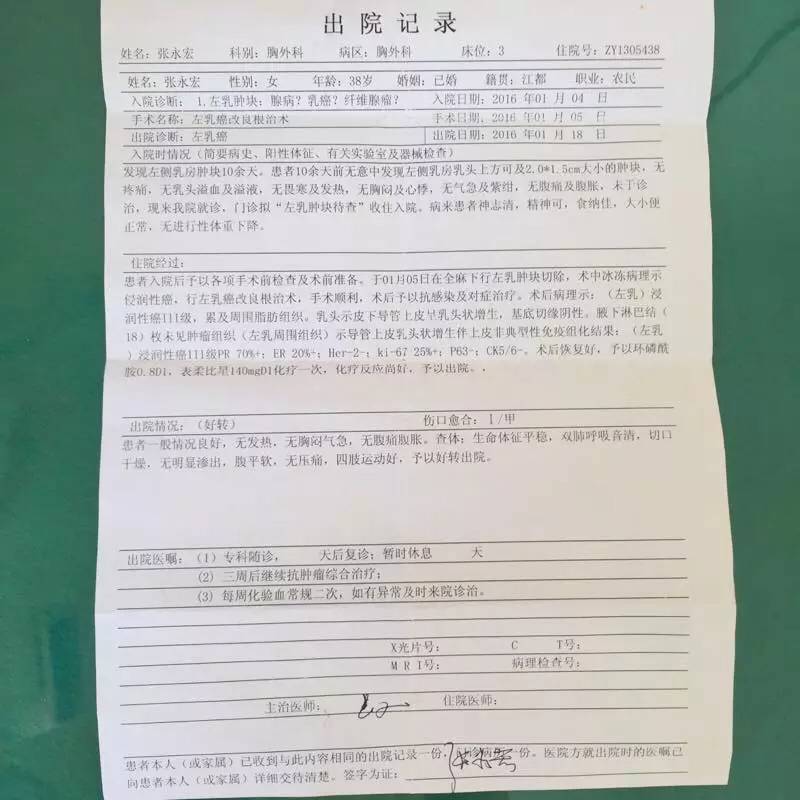 出院记录
姓名：张永宏 科别：胸外科 病区：胸外科 床位：3 住院号：ZY1305438
姓名：张永宏 性别：女 年龄：38岁 婚姻：已婚 籍贯：江都 职业：农民
入院诊断： 1.左乳肿块：腺病？乳癌？纤维腺瘤？ 入院日期：2016 年01 月 04 日
手术名称：左乳癌改良根治术 手术日期：2016 年01 月 05 日
出院诊断：左乳癌 出院日期：2016 年01 月 18 日
入院时情况（简要病史、阳性体征、有关实验室及器械检查）
发现左侧乳房肿块10余天。患者10余天前无意中发现左侧乳房乳头上方可及2.0*1.5cm大小的肿块，无
疼痛，无乳头溢血及溢液，无畏寒及发热，无胸闷及心悸，无气急及紫绀，无腹痛及腹胀，未于诊
治，现来我院就诊，门诊拟“左乳肿块待查”收住入院。病来患者神志清，精神可，食纳佳，大小便
正常，无进行性体重下降。
住院经过：
患者入院后予以各项手术前检查及术前准备。于01月05日在全麻下行左乳肿块切除，术中冰冻病理示
侵润性癌，行左乳癌改良根治术，手术顺利，术后予以抗感染及对症治疗。术后病理示：（左乳）浸
润性癌III级，累及周围脂肪组织。乳头示皮下导管上皮呈乳头状增生，基底切缘阴性。腋下淋巴结（
18）枚未见肿瘤组织（左乳周围组织）示导管上皮乳头状增生伴上皮非典型性免疫组化结果：（左乳
）浸润性癌III级PR 70%+；ER 20%-；Her-2-；ki-67 25%+；P63-；CK5/6-。术后恢复好，予以环磷酰
胺0.8D1，表柔比星140mgD1化疗一次，化疗反应尚好，予以出院。.
出院情况：（好转） 伤口愈合：I/甲
患者一般情况良好，无发热，无胸闷气急，无腹痛腹胀。查体：生命体征平稳，双肺呼吸音清，切口
干燥，无明显渗出，腹平软，无压痛，四肢运动好，予以好转出院。
出院医嘱：（1）专科随诊， 天后复诊；暂时休息 天
（2）三周后继续抗肿瘤综合治疗；
（3）每周化验血常规二次，如有异常及时来院诊治。
X光片号： C T号：
M R I号： 病理检查号：
主治医师： 住院医师：
患者本人（或家属）已收到与此内容相同的出院记录一份，诊病一份。医院方就出院时的医嘱已
向患者本人（或家属）详细交待清楚。签字为证：